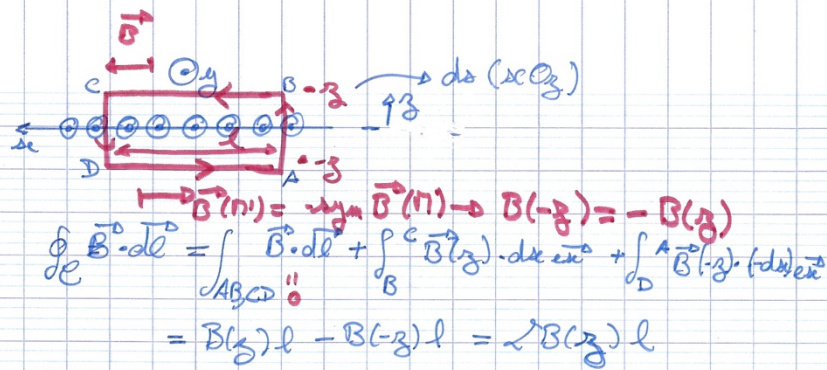 B⃗
C ⊙y B - z → ds (xOz)
↑z
x l
D A - z
B⃗(M') = - sym B⃗(M) → B(-z) = - B(z)
∮_C B⃗·dl⃗ = ∫_{AB,CD} B⃗·dl⃗ + ∫_B^C B⃗(z)·dx ex⃗ + ∫_D^A B⃗(-z)·(-dx) ex⃗
0
= B(z) l - B(-z) l = 2B(z) l